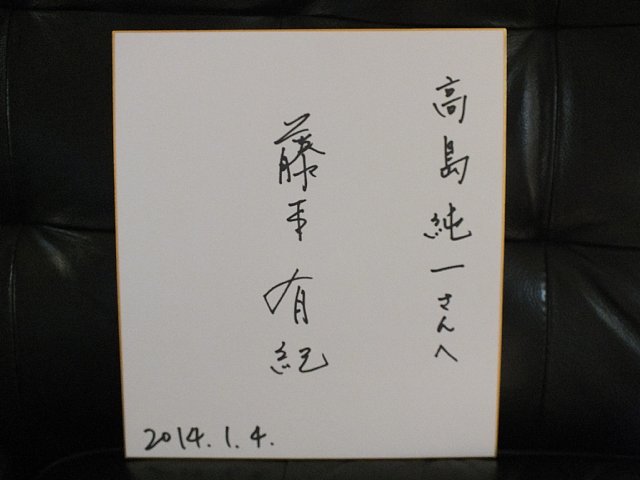 高島純一さんへ
藤本有紀
2014.1.4.